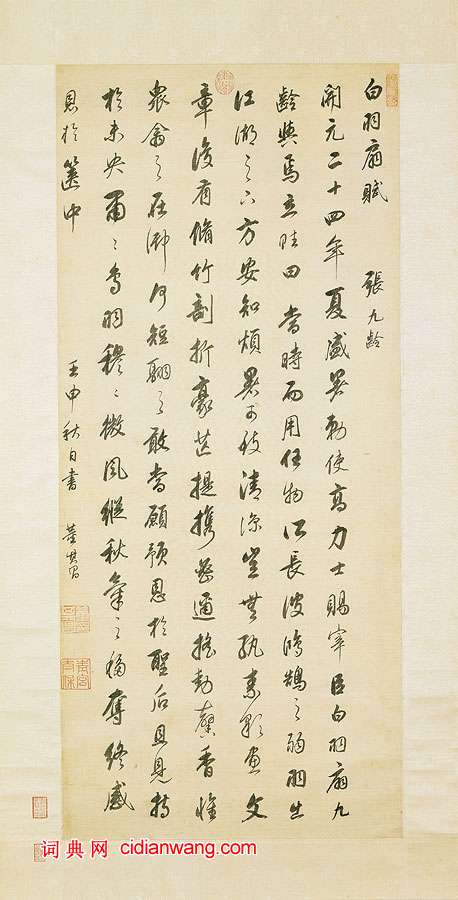 白羽扇賦 張九齡
開元二十四年夏盛暑勅使高力士賜宰臣白羽扇九
齡與焉立陛曰當時而用任物所長彼鴻鵠之弱羽出
江湖之下方安知煩暑可致清涼豈無紈素彩畫文
章復有脩竹剖折豪芒提攜密邇搖動馨香惟
衆禽之在御何短翮之敢當顧預恩於聖后且見持
於未央肅〻鳥羽穆〻微風縱秋氣之移奪終感
恩於篋中 壬申秋日書 董其昌
词典网 cidianwang.com